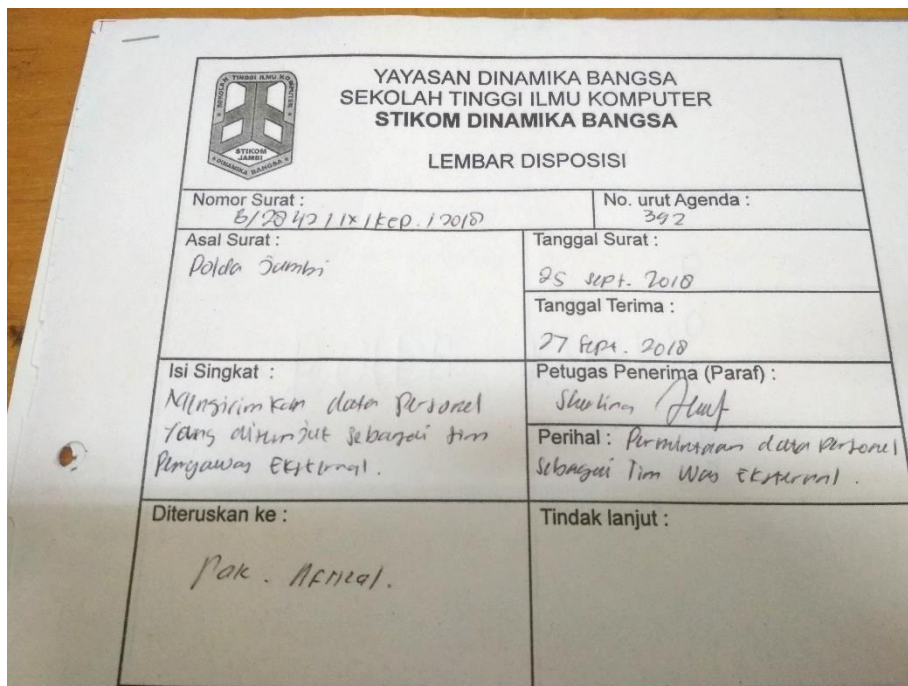 SEKOLAH TINGGI ILMU KOMPUTER
STIKOM
JAMBI
DINAMIKA BANGSA
YAYASAN DINAMIKA BANGSA
SEKOLAH TINGGI ILMU KOMPUTER
STIKOM DINAMIKA BANGSA
LEMBAR DISPOSISI
Nomor Surat :
B/2842/IX/Kep./2018
No. urut Agenda :
392
Asal Surat :
Polda Jambi
Tanggal Surat :
25 Sept. 2018
Tanggal Terima :
27 Sept. 2018
Isi Singkat :
Mengirimkan data Personel
Yang ditunjuk sebagai tim
Pengawas Eksternal.
Petugas Penerima (Paraf) :
Perihal : Permintaan data personel
sebagai Tim Was Eksternal.
Diteruskan ke :
Pak. Afrizal.
Tindak lanjut :